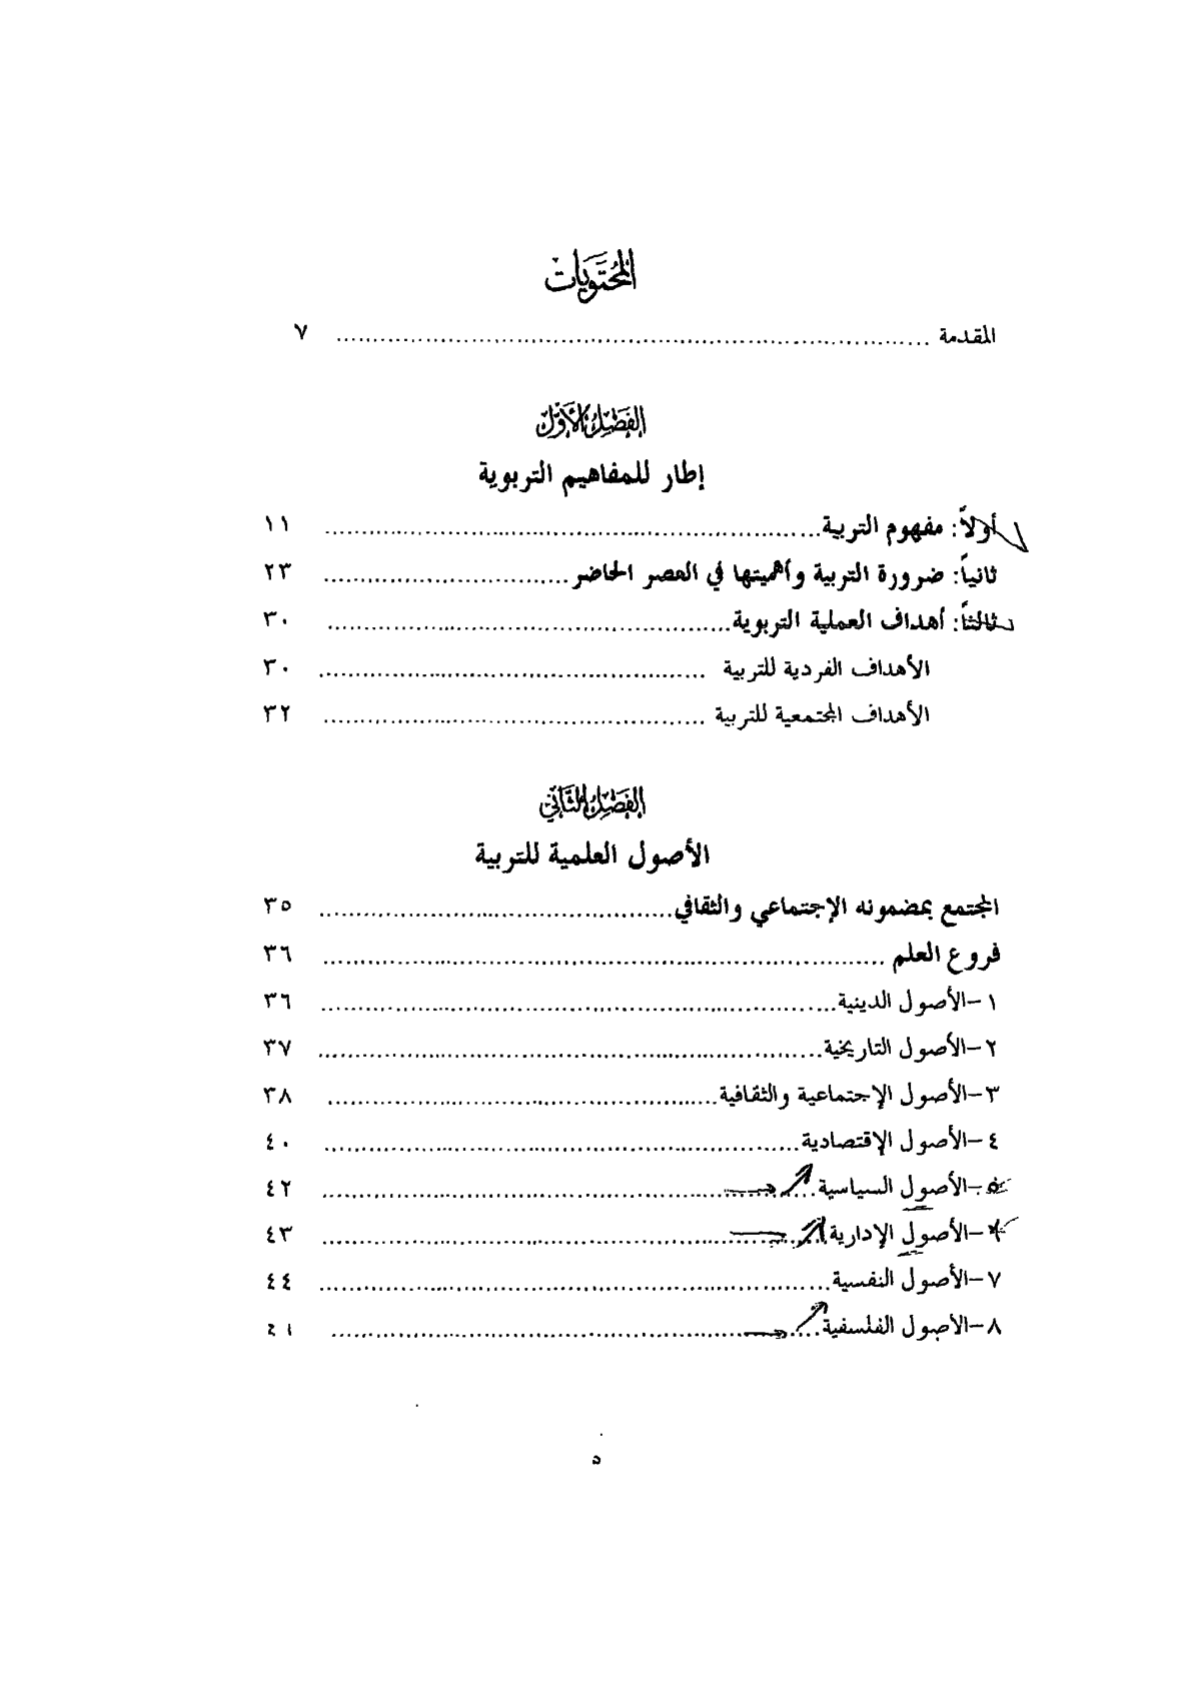 المُحتَوَيات
المقدمة ........................ ٧
الفَصْلُ الأَوَّل
إطار للمفاهيم التربوية
أولاً: مفهوم التربية ........................ ١١
ثانياً: ضرورة التربية وأهميتها في العصر الحاضر ........................ ٢٣
ثالثاً: أهداف العملية التربوية ........................ ٣٠
الأهداف الفردية للتربية ........................ ٣٠
الأهداف المجتمعية للتربية ........................ ٣٢
الفَصْلُ الثَّاني
الأصول العلمية للتربية
المجتمع بمضمونه الإجتماعي والثقافي ........................ ٣٥
فروع العلم ........................ ٣٦
١-الأصول الدينية ........................ ٣٦
٢-الأصول التاريخية ........................ ٣٧
٣-الأصول الإجتماعية والثقافية ........................ ٣٨
٤-الأصول الإقتصادية ........................ ٤٠
٥-الأصول السياسية ........................ ٤٢
٦-الأصول الإدارية ........................ ٤٣
٧-الأصول النفسية ........................ ٤٤
٨-الأصول الفلسفية ........................
٥